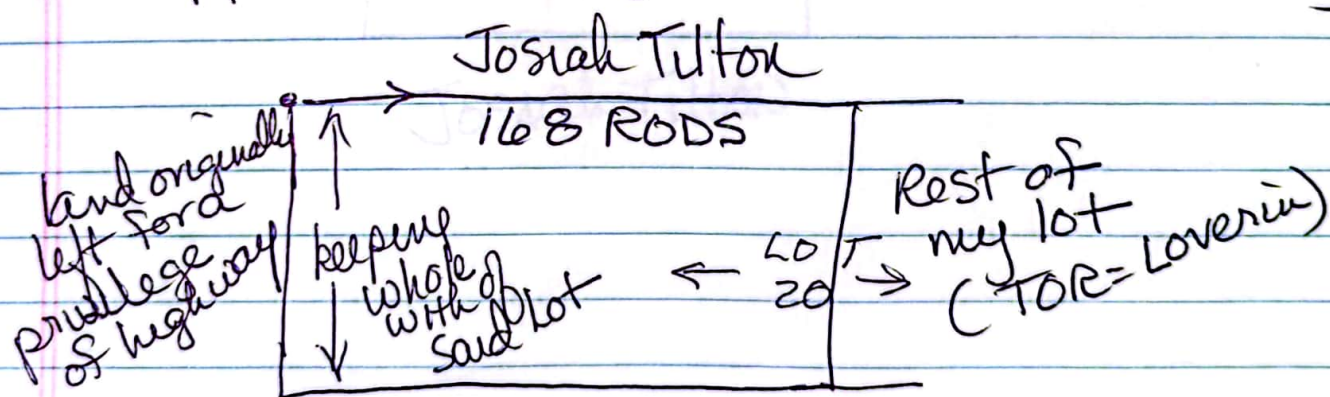 Josiah Tilton
168 RODS
land originally
left for a
privilege
of highway
keeping
whole of
with of
said Lot
LOT
20
Rest of
my lot
(TOR = Loverin)